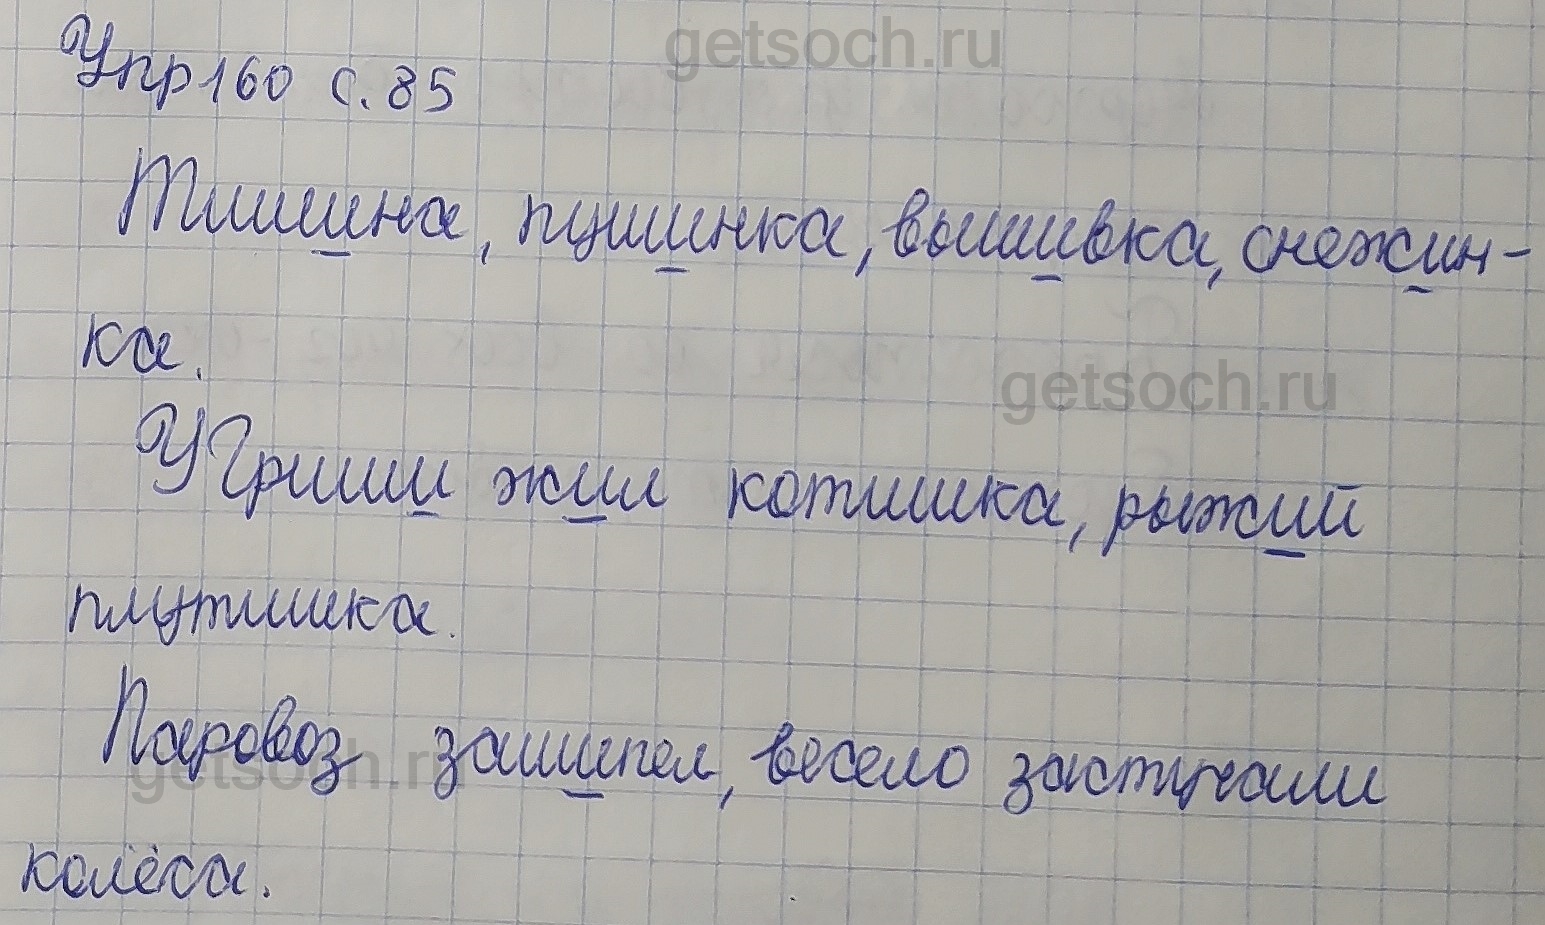 getsoch.ru
Упр 160 с. 85
Тишина, пушинка, вышивка, снежин-
ка.
getsoch.ru
У Гриши жил котишка, рыжий
плутишка.
Паровоз зашипел, весело застучали
getsoch.ru
колёса.